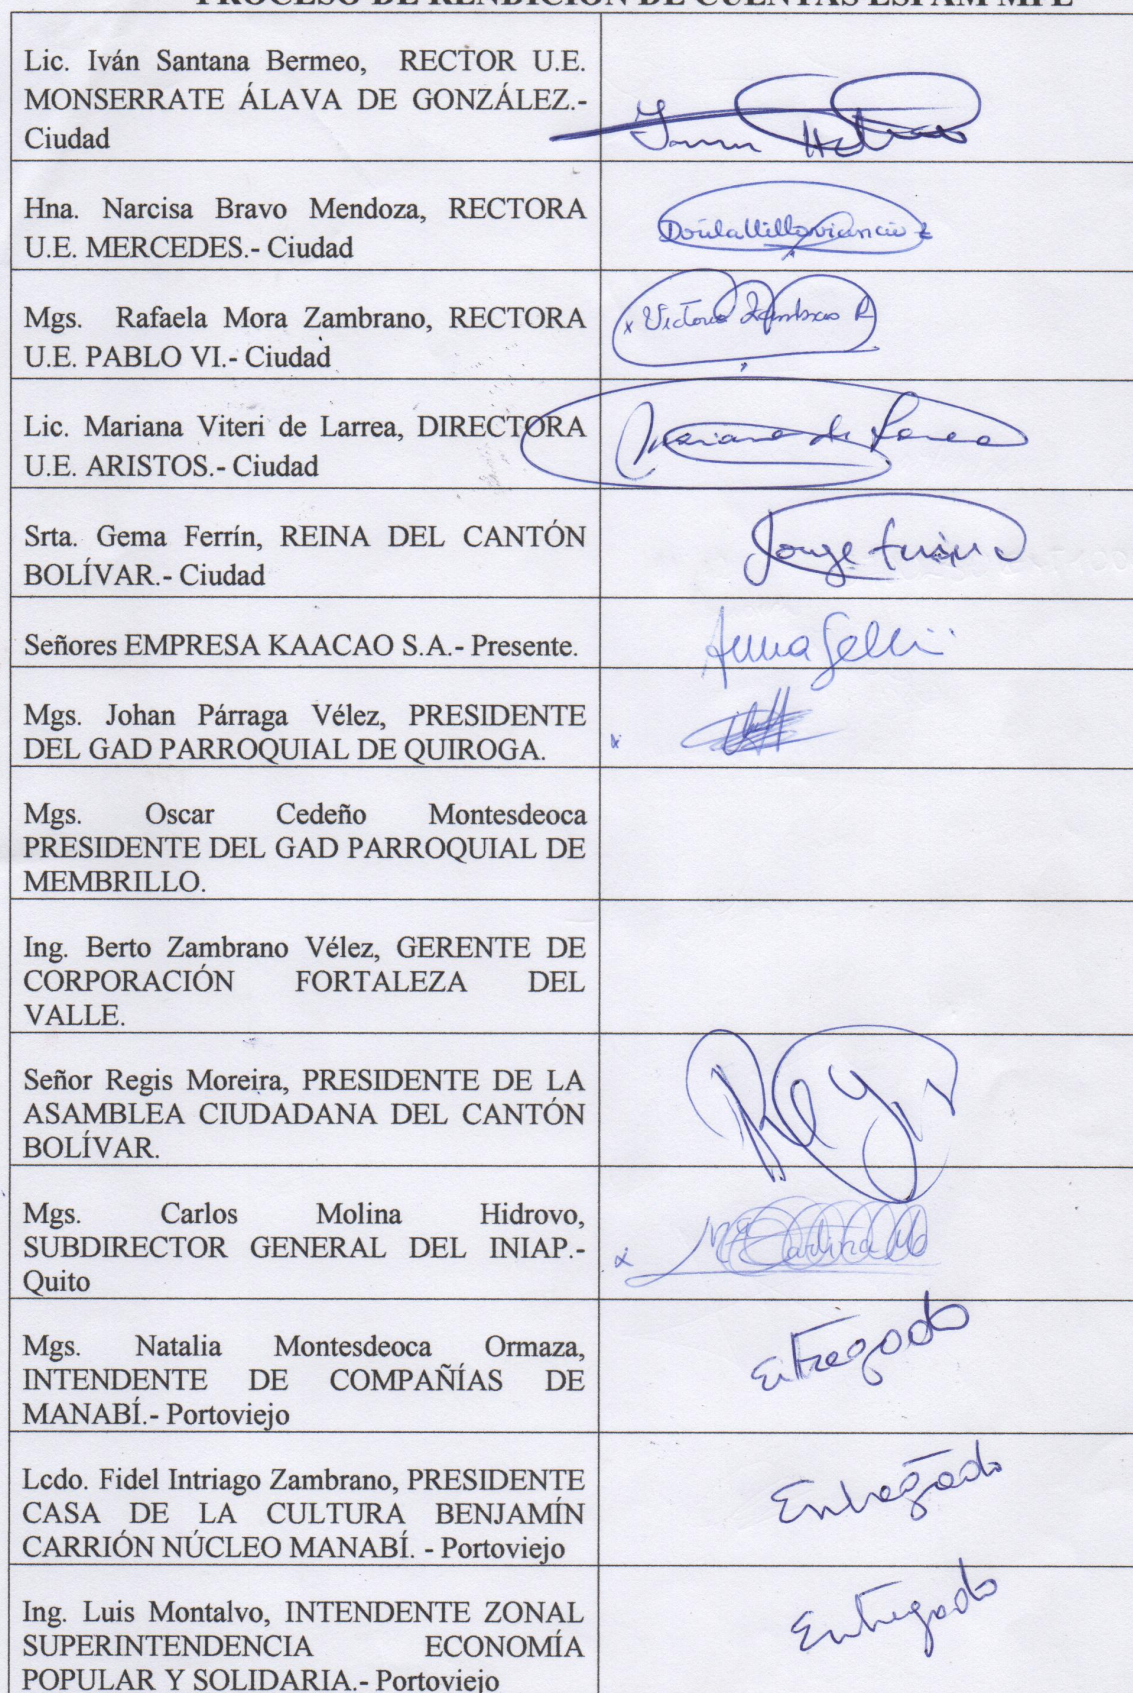 PROCESO DE RENDICIÓN DE CUENTAS ESPAM MFL
Lic. Iván Santana Bermeo, RECTOR U.E.
MONSERRATE ÁLAVA DE GONZÁLEZ.-
Ciudad
Hna. Narcisa Bravo Mendoza, RECTORA
U.E. MERCEDES.- Ciudad
Mgs. Rafaela Mora Zambrano, RECTORA
U.E. PABLO VI.- Ciudad
x Victoria Zambrano R
Lic. Mariana Viteri de Larrea, DIRECTORA
U.E. ARISTOS.- Ciudad
Mariana de Larrea
Srta. Gema Ferrín, REINA DEL CANTÓN
BOLÍVAR.- Ciudad
Jorge Ferrín
Señores EMPRESA KAACAO S.A.- Presente.
Anna
Mgs. Johan Párraga Vélez, PRESIDENTE
DEL GAD PARROQUIAL DE QUIROGA.
x
Mgs. Oscar Cedeño Montesdeoca
PRESIDENTE DEL GAD PARROQUIAL DE
MEMBRILLO.
Ing. Berto Zambrano Vélez, GERENTE DE
CORPORACIÓN FORTALEZA DEL
VALLE.
Señor Regis Moreira, PRESIDENTE DE LA
ASAMBLEA CIUDADANA DEL CANTÓN
BOLÍVAR.
Mgs. Carlos Molina Hidrovo,
SUBDIRECTOR GENERAL DEL INIAP.-
Quito
x
Mgs. Natalia Montesdeoca Ormaza,
INTENDENTE DE COMPAÑÍAS DE
MANABÍ.- Portoviejo
Entregado
Lcdo. Fidel Intriago Zambrano, PRESIDENTE
CASA DE LA CULTURA BENJAMÍN
CARRIÓN NÚCLEO MANABÍ. - Portoviejo
Entregado
Ing. Luis Montalvo, INTENDENTE ZONAL
SUPERINTENDENCIA ECONOMÍA
POPULAR Y SOLIDARIA.- Portoviejo
Entregado